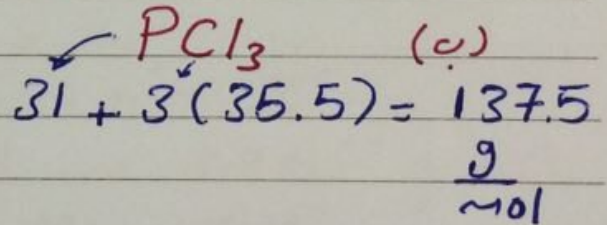 PCl₃ (c)
31 + 3(35.5) = 137.5
g
mol